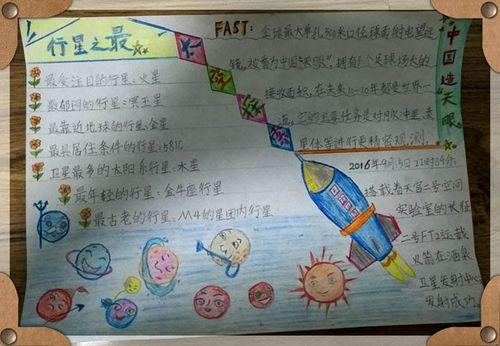 行星之最
最受注目的行星:火星
最郁闷的行星:冥王星
最靠近地球的行星:金星
最具居住条件的行星:581C
卫星最多的太阳系行星:木星
最年轻的行星:金牛座行星
最古老的行星:M4的星团内行星
FAST:全球最大单孔500米口径球面射电望远
镜,被誉为中国"天眼",拥有30个足球场大的
接收面积,在未来10-20年都是世界一
流,它的主要任务是对脉冲星、类
星体等进行更精密观测.
中国造"天眼"
2016年9月15日22时04分,
搭载着天宫二号空间
实验室的长征
二号FT2运载
火箭在酒泉
卫星发射中心
发射成功